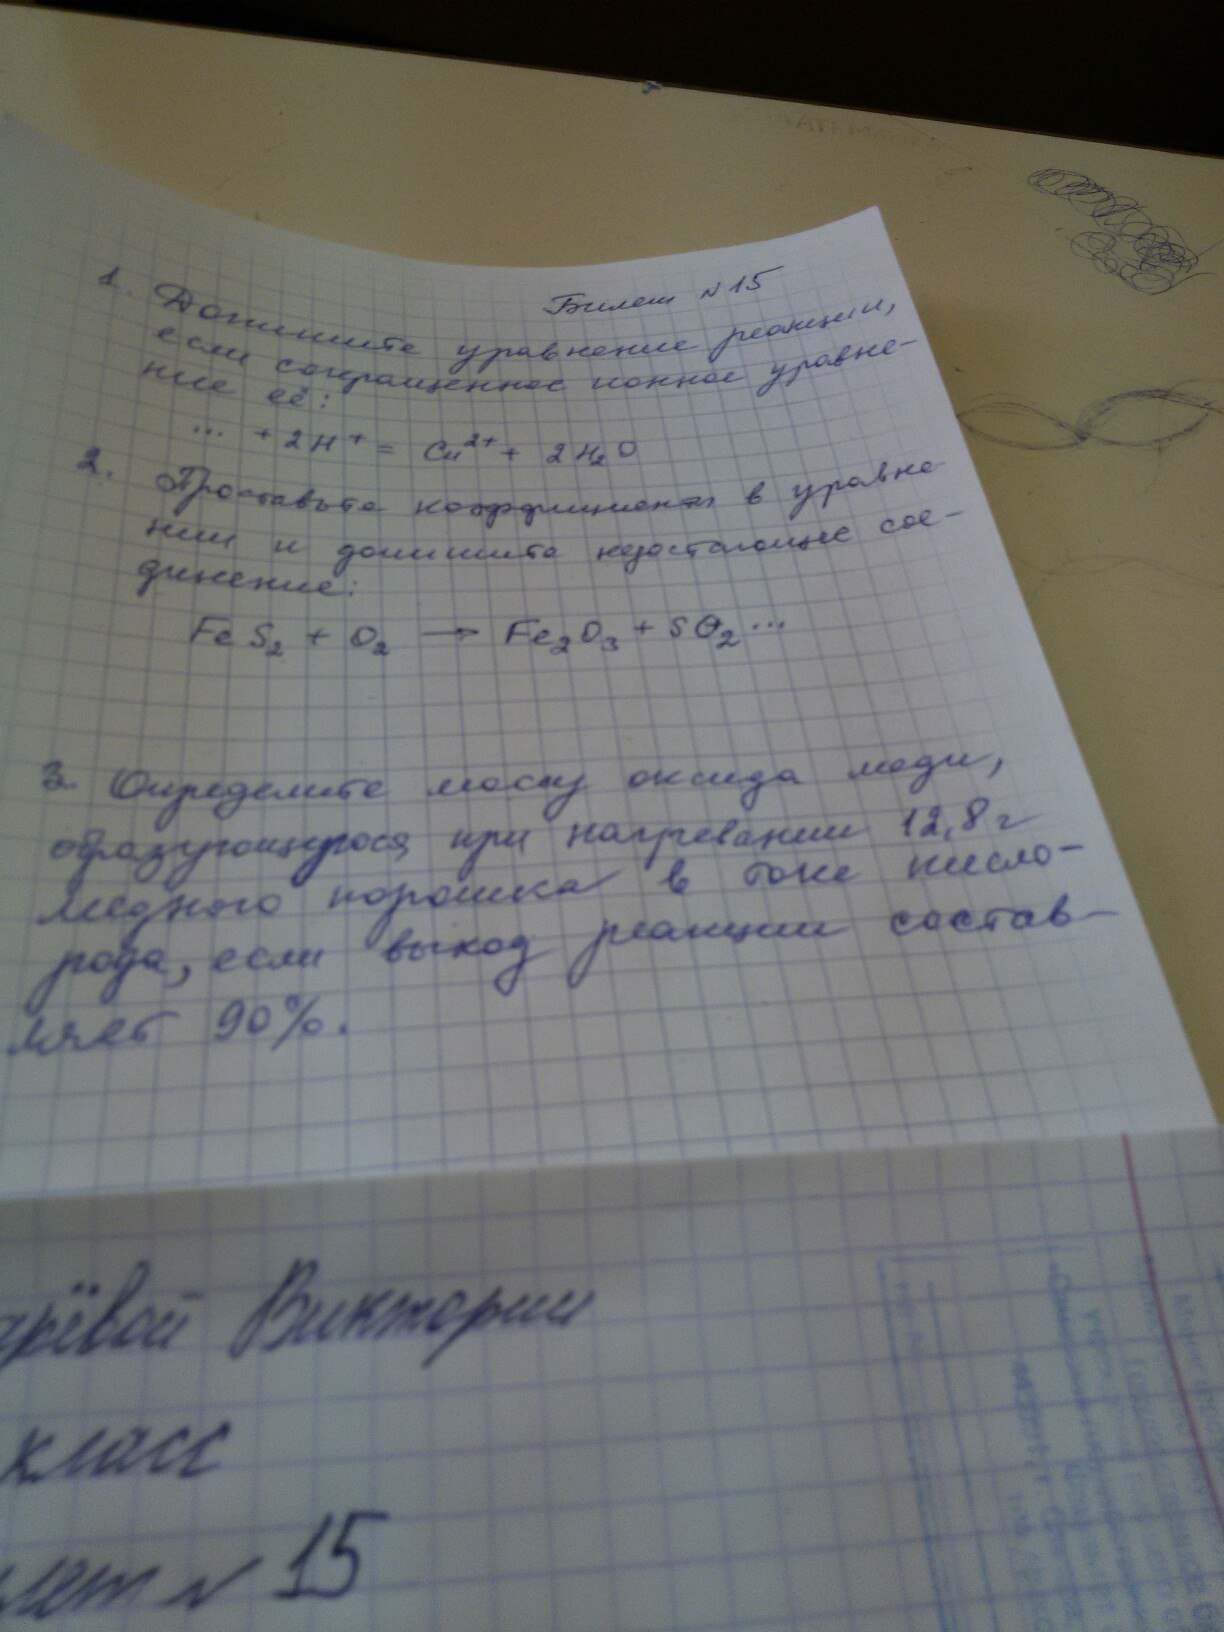 Билет №15
1. Допишите уравнение реакции,
если сокращенное ионное уравне-
ние её:
... + 2H⁺ = Cu²⁺ + 2H₂O
2. Проставьте коэффициенты в уравне
нии и допишите недостающее сое-
динение:
FeS₂ + O₂ → Fe₂O₃ + SO₂ ...
3. Определите массу оксида меди,
образующуюся при нагревании 12,8 г
медного порошка в токе кисло-
рода, если выход реакции состав-
ляет 90%.
Виктории
класс
№ 15